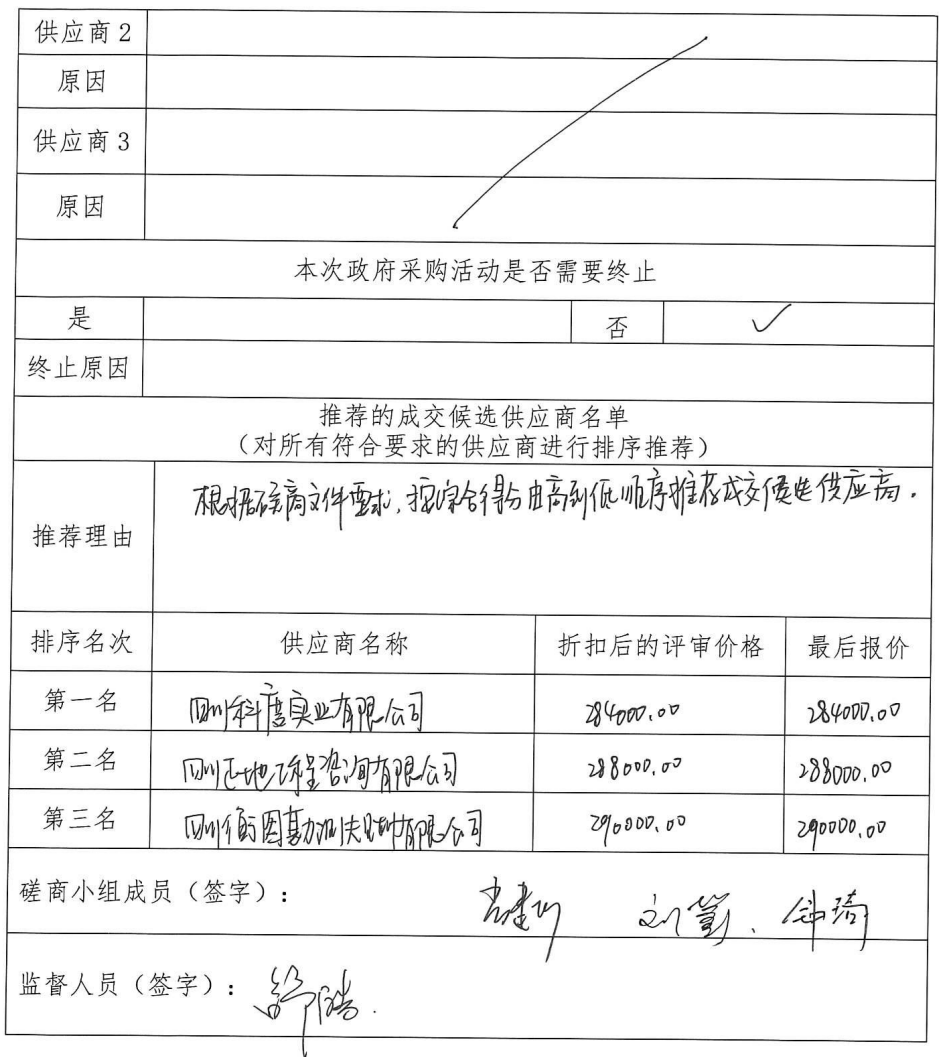 供应商2
原因
供应商3
原因
本次政府采购活动是否需要终止
是 否 ✓
终止原因
推荐的成交候选供应商名单
（对所有符合要求的供应商进行排序推荐）
推荐理由 根据磋商文件要求，按综合得分由高到低顺序推荐成交候选供应商。
排序名次 供应商名称 折扣后的评审价格 最后报价
第一名 四川科度实业有限公司 284000.00 284000.00
第二名 四川正地工程咨询有限公司 288000.00 288000.00
第三名 四川 图勘测 有限公司 290000.00 290000.00
磋商小组成员（签字）：
监督人员（签字）：